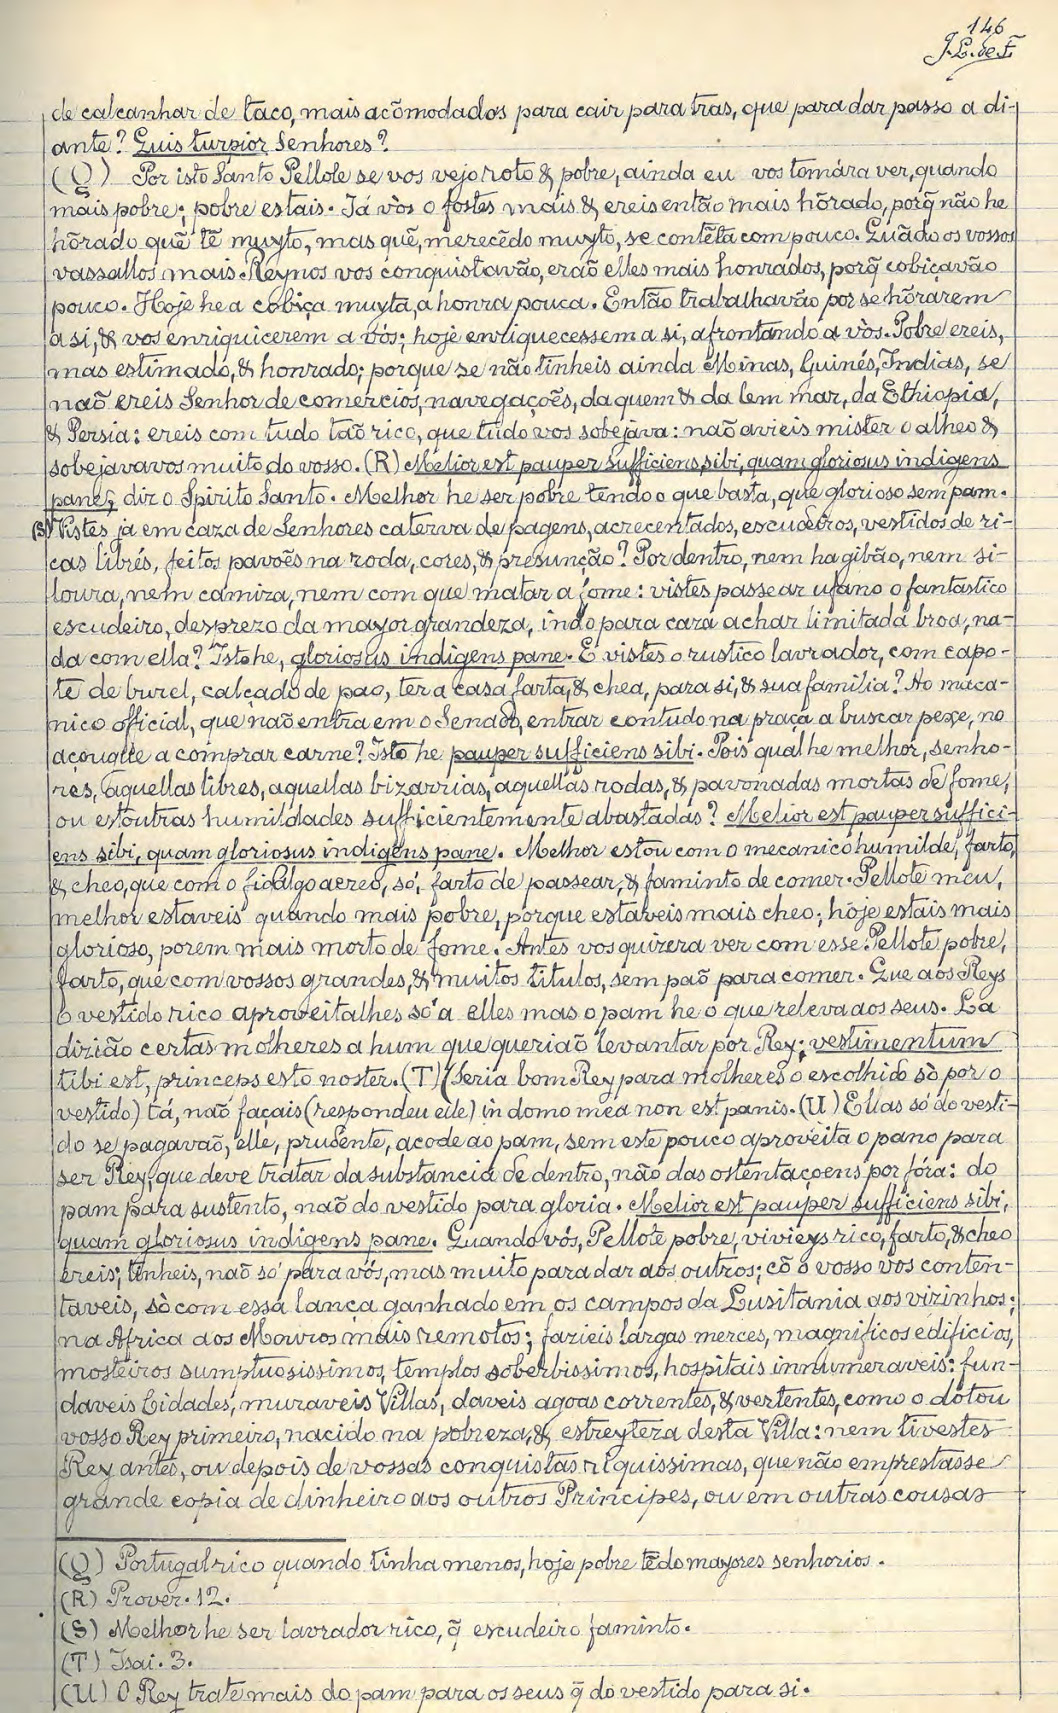 146
J.L. de F.
de calcanhar de taco, mais acõmodados para cair para tras, que para dar passo a di-
ante? Quis turpior Senhores?
(Q) Por isto Santo Pellote se vos vejo roto & pobre, ainda eu vos tomára ver, quando
mais pobre; pobre estais. Já vòs o fostes mais & ereis então mais hõrado, porq̃ não he
hõrado quẽ tẽ muyto, mas quẽ, merecẽdo muyto, se contẽta com pouco. Quãdo os vossos
vassallos mais Reynos vos conquistavão, erão elles mais honrados, porq̃ cobiçavão
pouco. Hoje he a cobiça muyta, a honra pouca. Então trabalhavão por se hõrarem
a si, & vos enriquicerem a vós; hoje enriquecessem a si, afrontando a vòs. Pobre ereis,
mas estimado, & honrado; porque se não tinheis ainda Minas, Guinés, Indias, se
naõ ereis Senhor de comercios, navegações, daquem & da lem mar, da Ethiopia,
& Persia: ereis com tudo taõ rico, que tudo vos sobejava: naõ avieis mister o alheo &
sobejavavos muito do vosso. (R) Melior est pauper sufficiens sibi, quam gloriosus indigens
pane, diz o Spirito Santo. Melhor he ser pobre tendo o que basta, que glorioso sem pam.
(S) Vistes já em caza de Senhores caterva de pagens, acrecentados, escudeiros, vestidos de ri-
cas librés, feitos pavoẽs na roda, cores, & presunção? Por dentro, nem ha gibão, nem si-
loura, nem camiza, nem com que matar a fome: vistes passear ufano o fantastico
escudeiro, desprezo da mayor grandeza, indo para caza achar limitada broa, na-
da com ella? Isto he, gloriosus indigens pane. E vistes o rustico lavrador, com capo-
te de burel, calçado de pao, ter a casa farta, & chea, para si, & sua familia? Ao maca-
nico official, que naõ entra em o Senado, entrar contudo na praça a buscar pexe, no
açougue a comprar carne? Isto he pauper sufficiens sibi. Pois qual he melhor, senho-
res, aquellas libres, aquellas bizarrias, aquellas rodas, & pavonadas mortas de fome,
ou estoutras humildades sufficientemente abastadas? Melior est pauper suffici-
ens sibi, quam gloriosus indigens pane. Melhor estou com o mecanico humilde, farto,
& cheo, que com o fidalgo aereo, só, farto de passear, & faminto de comer. Pellote meu,
melhor estaveis quando mais pobre, porque estaveis mais cheo; hoje estais mais
glorioso, porem mais morto de fome. Antes vos quizera ver com esse Pellote pobre,
farto, que com vossos grandes, & muitos titulos, sem paõ para comer. Que aos Reys
o vestido rico aproveitalhes só a elles mas o pam he o que releva aos seus. La
dizião certas molheres a hum que queriaõ levantar por Rey; vestimentum
tibi est, princeps esto noster. (T) (Seria bom Rey para molheres o escolhido sò por o
vestido) tá, naõ façais (respondeu elle) in domo mea non est panis. (U) Ellas só do vesti-
do se pagavaõ, elle, prudente, acode ao pam, sem este pouco aproveita o pano para
ser Rey, que deve tratar da substancia de dentro, não das ostentaçoens por fóra: do
pam para sustento, naõ do vestido para gloria. Melior est pauper sufficiens sibi,
quam gloriosus indigens pane. Quando vós, Pellote pobre, vivieys rico, farto, & cheo
ereis; tenheis, naõ só para vós, mas muito para dar aos outros; cõ o vosso vos conten-
taveis, sò com essa lança ganhado em os campos da Lusitania aos vizinhos;
na Africa aos Mouros mais remotos; fazieis largas merces, magnificos edificios,
mosteiros sumptuosissimos, templos soberbissimos, hospitais innumeraveis: fun-
daveis Cidades, muraveis Villas, daveis agoas correntes, & vertentes, como o dotou
vosso Rey primeiro, nacido na pobreza, & estreyteza desta Villa: nem tivestes
Rey antes, ou depois de vossas conquistas riquissimas, que não emprestasse
grande copia de dinheiro aos outros Principes, ou em outras cousas
(Q) Portugal rico quando tinha menos, hoje pobre tẽdo mayores senhorios.
(R) Prover. 12.
(S) Melhor he ser lavrador rico, q̃ escudeiro faminto.
(T) Isai. 3.
(U) O Rey trate mais do pam para os seus q̃ do vestido para si.